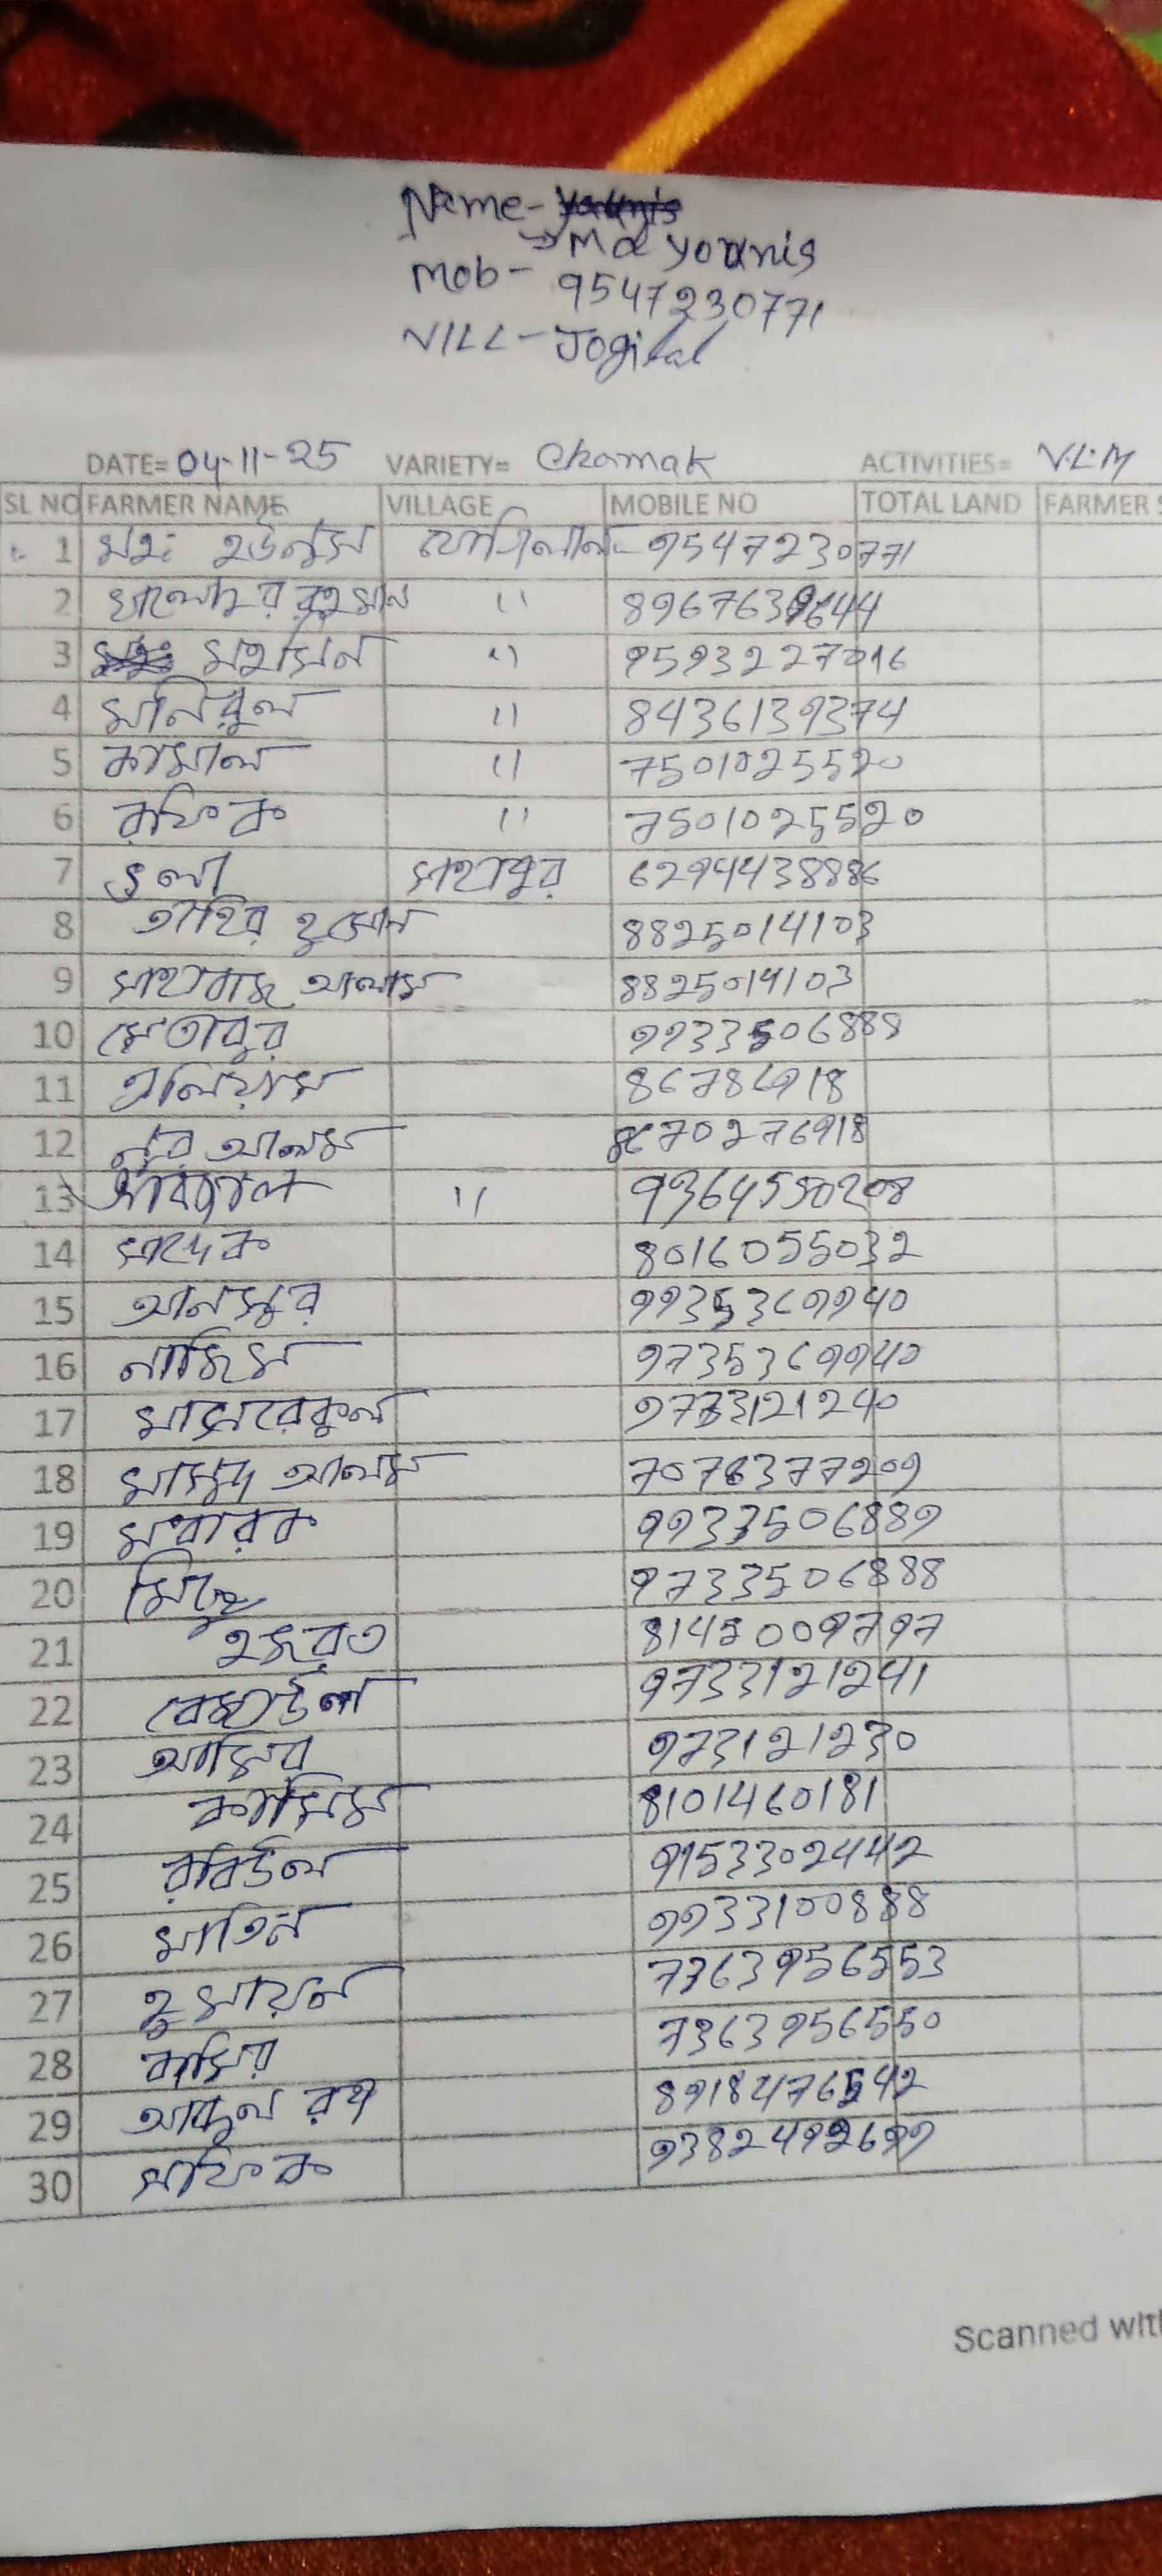 Name-
→ Md younis
Mob- 9547230771
VILL - Jogilal
DATE= 04-11-25 VARIETY= Chamak ACTIVITIES= V.L.M
SL NO FARMER NAME VILLAGE MOBILE NO TOTAL LAND FARMER
1 মহঃ ইউনুস যোগিলাল- 9547230771
2 রহমান "
3 মহসিন " 9593227016
4 মনিরুল " 8436139374
5 কামাল " 7501025520
6 রফিক " 7501025520
7 ভুলা সাহাপুর 62944438886
8 তাহির হুসেন 8825014103
9 সাহাবাজ আলাম 8825014103
10 9933506888
11 ইলিয়াস 86786918
12 নুর আলম 8670276918
13 " 9364550208
14 সাদেক 8016055032
15 আনসুর 9935369940
16 নাজিম 9735369940
17 মাসরেকুল 9733121240
18 মাসুদ আলম 7076377209
19 মবারক 9933506889
20 9733506888
21 হজরত 8145009797
22 রেজাউল 9733121241
23 আমির 973121230
24 কাসিম 8101460181
25 রবিউল 9153302442
26 মাতিন 9933100888
27 হুমায়ন 7363956553
28 বাসির 7363956550
29 আব্দুল রব 8918476542
30 সফিক 9382492699
Scanned with